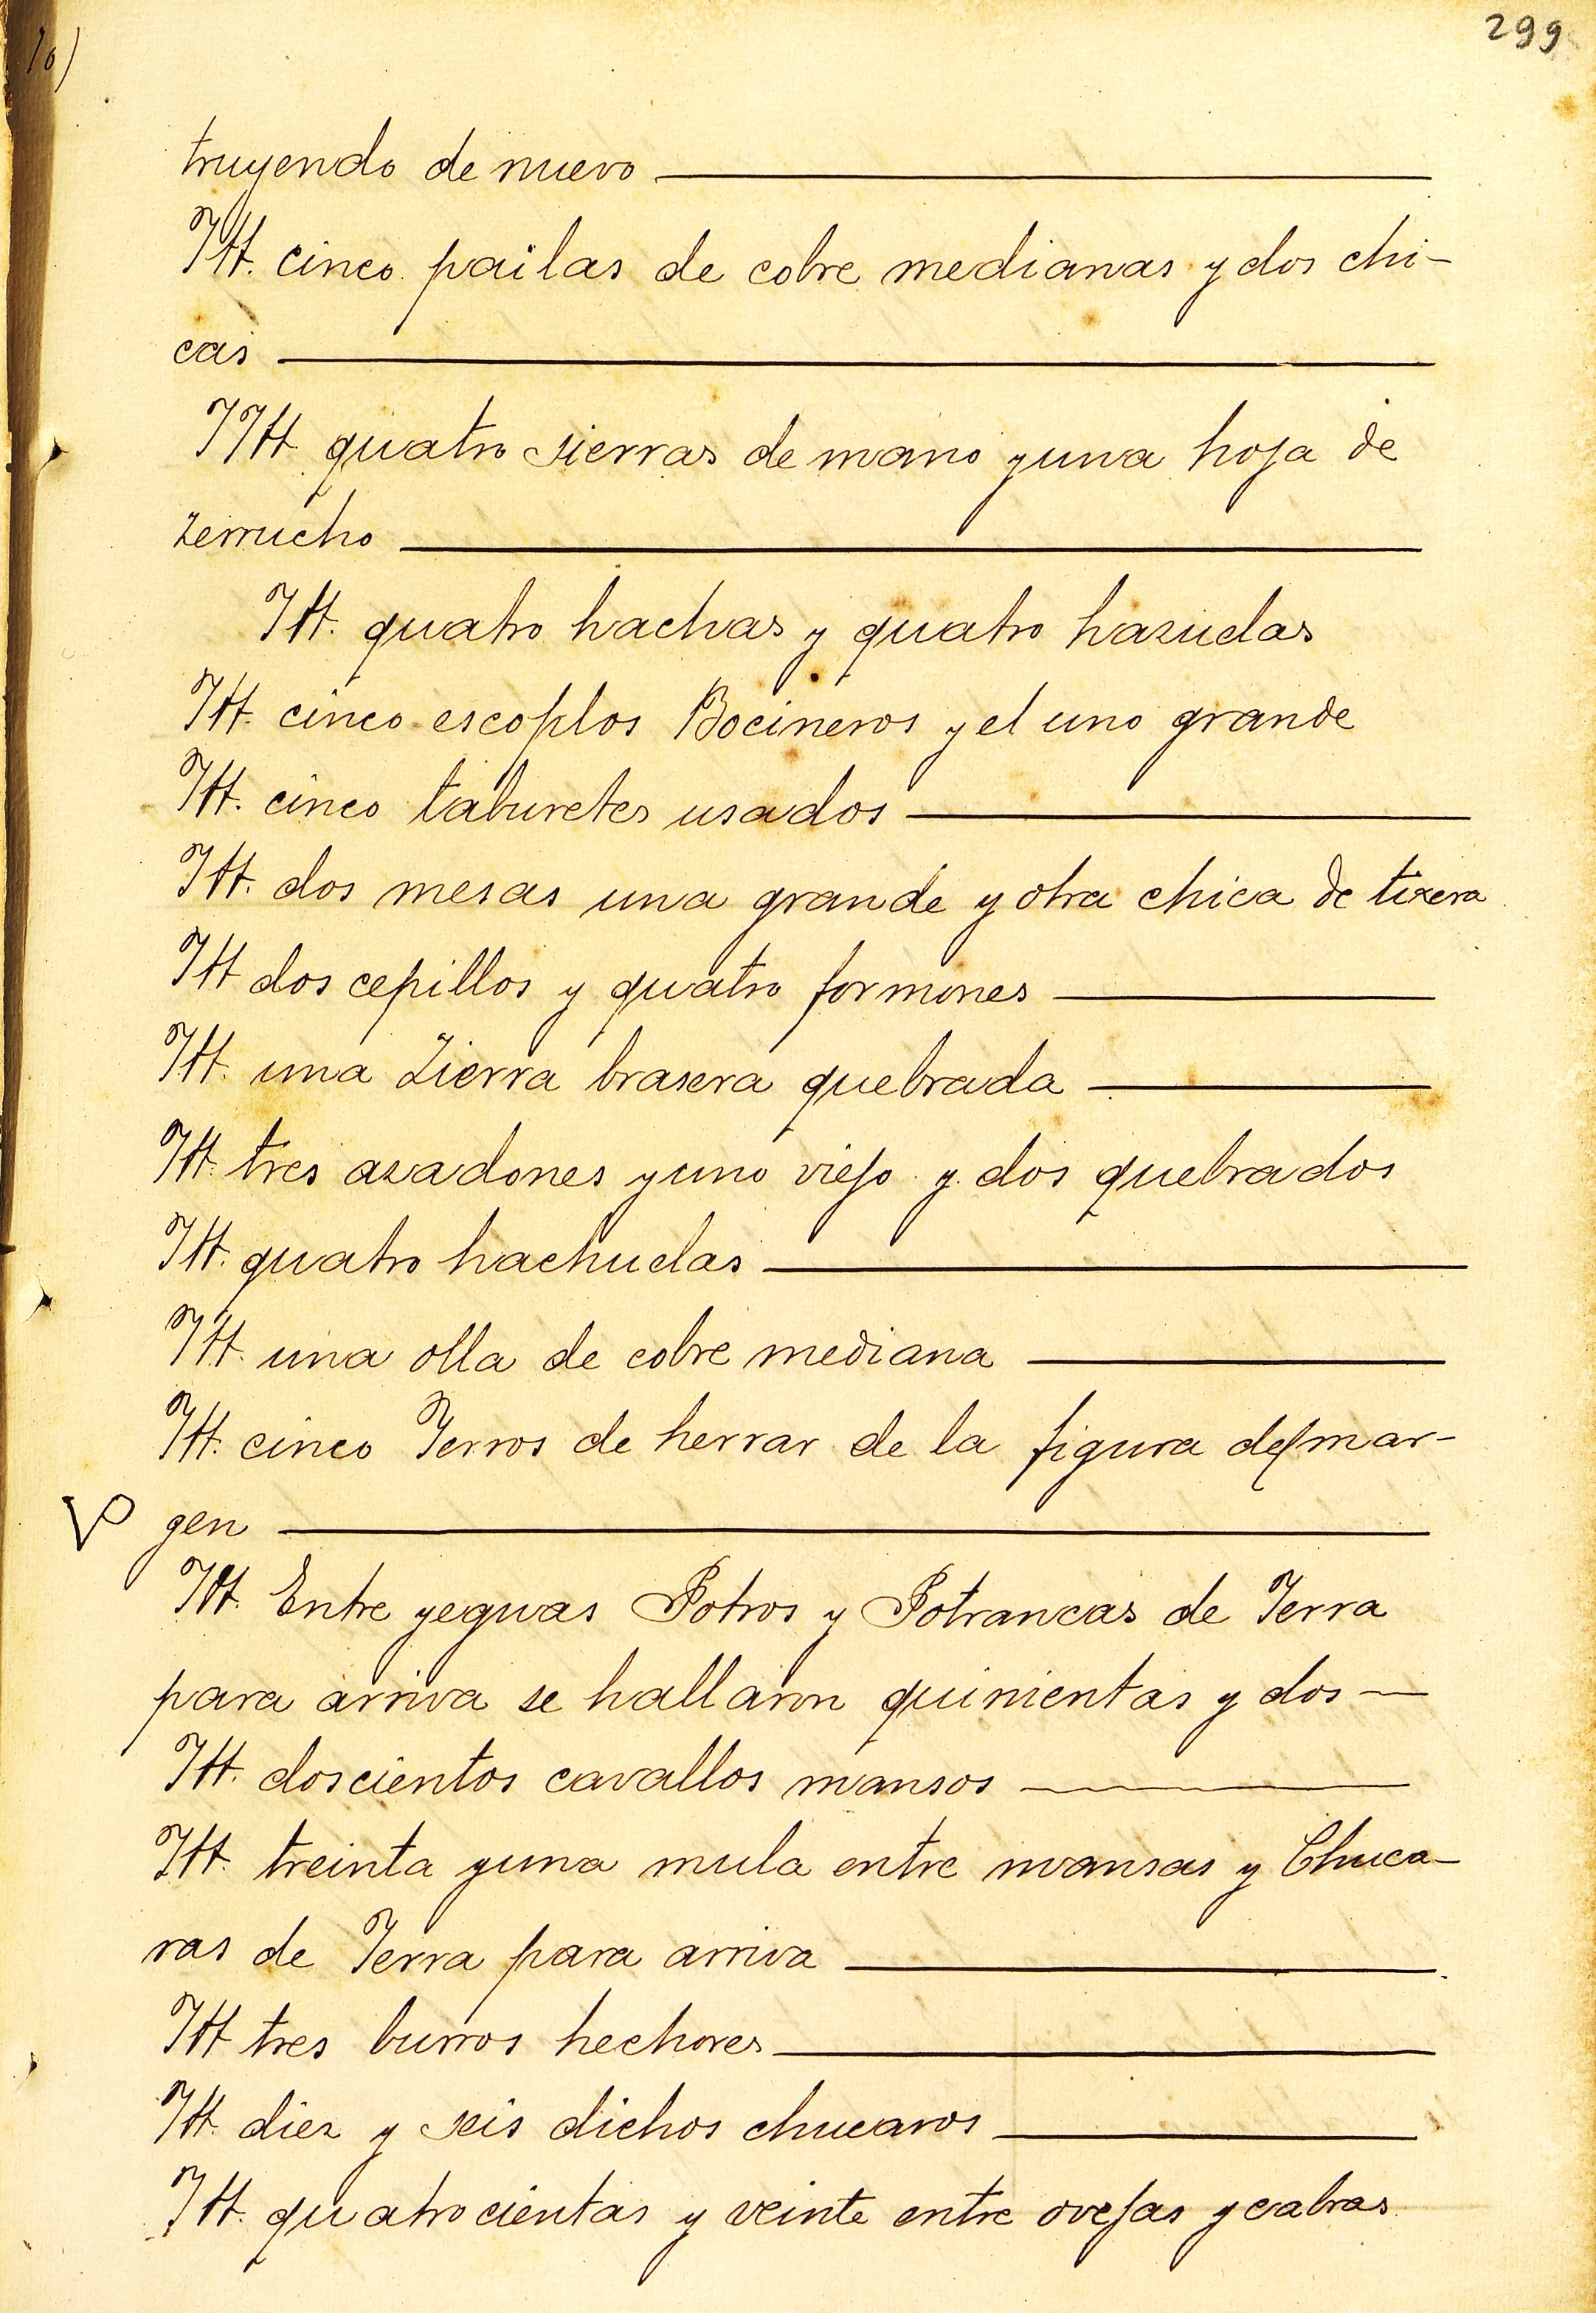 299
truyendo de nuevo
Itt. cinco pailas de cobre medianas y dos chi-
cas
Itt quatro sierras de mano y una hoja de
zerrucho
Itt. quatro hachas y quatro hazuelas
Itt. cinco escoplos Bocineros y el uno grande
Itt. cinco taburetes usados
Itt. dos mesas una grande y otra chica de tixera
Itt dos cepillos y quatro formones
Itt. una Zierra brasera quebrada
Itt. tres azadones y uno viejo y dos quebrados
Itt. quatro hachuelas
Itt. una olla de cobre mediana
Itt. cinco Ierros de herrar de la figura del mar-
gen
Itt. Entre yeguas Potros y Potrancas de Ierra
para arriva se hallaron quinientas y dos
Itt. doscientos cavallos mansos
Itt. treinta y una mula entre mansas y Chuca-
ras de Ierra para arriva
Itt tres burros hechores
Itt. diez y seis dichos chucaros
Itt. quatrocientas y veinte entre ovejas y cabras